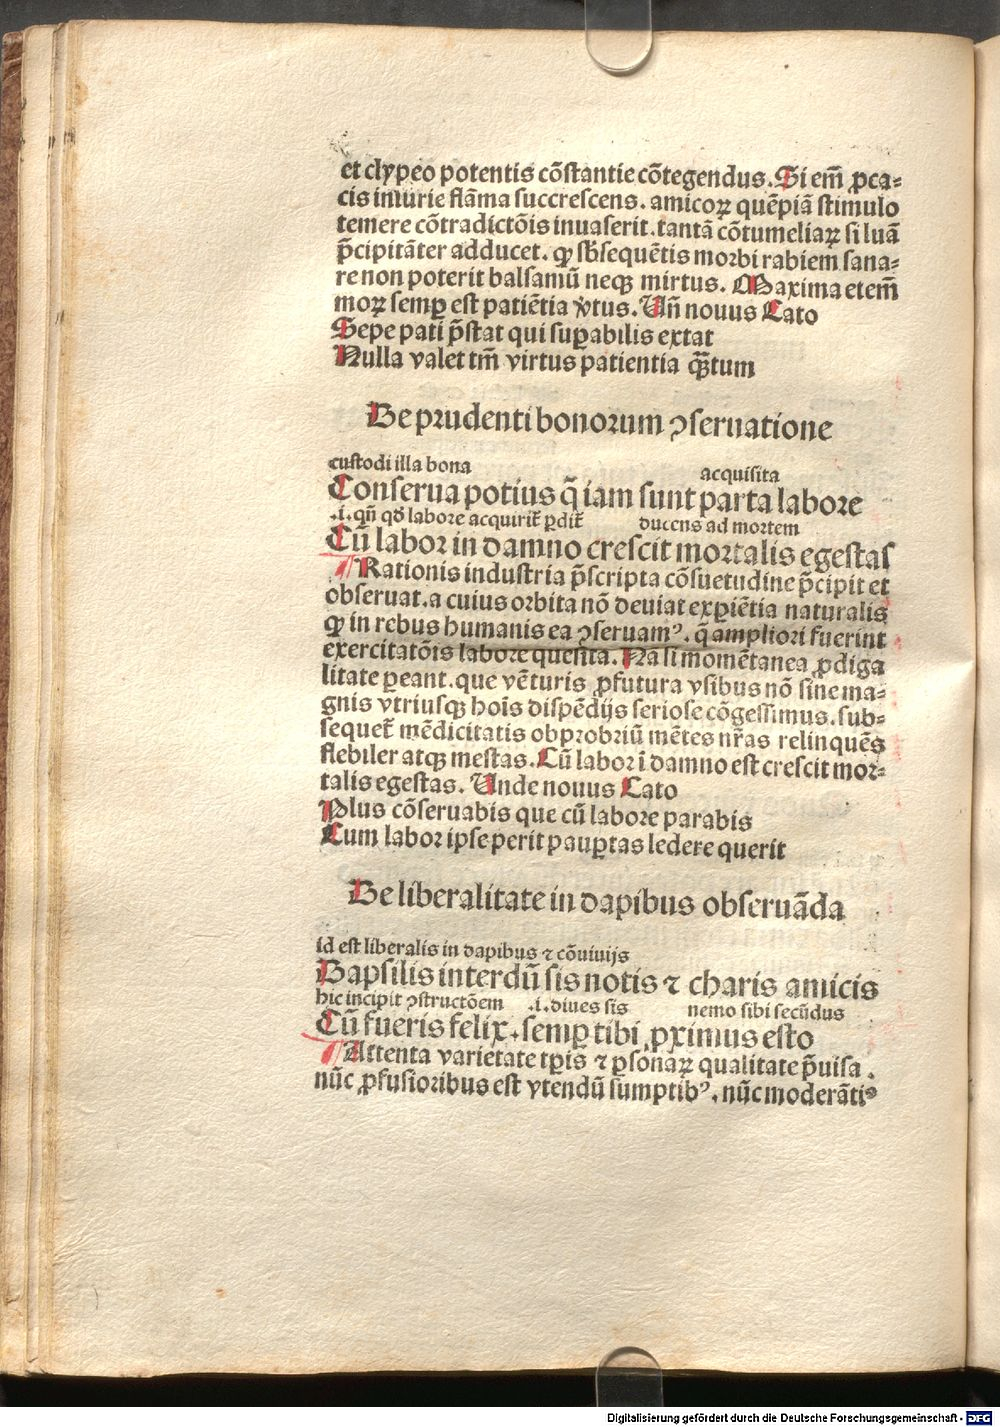 et clypeo potentis cōstantie cōtegendus. Si em̄ ꝓca⸗
cis iniurie flāma succrescens. amicoꝝ quēpiā stimulo
temere cōtradictōis inuaserit. tantā cōtumeliaꝝ si luā
p̄cipitāter adducet. ꝙ sb̄sequētis morbi rabiem sana⸗
re non poterit balsamū neqꝫ mirtus. Maxima etem̄
moꝝ semꝑ est patiētia v̓tus. Vn̄ nouus Cato
Sepe pati p̄stat qui suꝑabilis extat
Nulla valet tm̄ virtus patientia qᷓꝫtum
De prudenti bonorum ꝯseruatione
custodi illa bona acquisita
Conserua potius q̄ iam sunt parta labore
.i. qn̄ qd̓ labore acquirit᷑ ꝑdit᷑ ducens ad mortem
Cū labor in damno crescit mortalis egestas
¶ Rationis industria p̄scripta cōsuetudine p̄cipit et
obseruat. a cuius orbita nō deuiat exꝑiētia naturalis
ꝙ in rebus humanis ea ꝯseruamꝰ. q̄ ampliori fuerint
exercitatōis labore quesita. Nā si momētanea ꝓdiga
litate ꝑeant. que vēturis ꝓfutura vsibus nō sine ma⸗
gnis vtriusqꝫ hoīs dispēdijs seriose cōgessimus. sub⸗
sequet᷑ mēdicitatis obprobriū mētes nr̄as relinquēs
flebiler atqꝫ mestas. Cū labor ī damno est crescit mor⸗
talis egestas. Unde nouus Cato
Plus cōseruabis que cū labore parabis
Cum labor ipse perit pauꝑtas ledere querit
De liberalitate in dapibus obseruāda
id est liberalis in dapibus ⁊ cōuiuijs
Dapsilis interdū sis notis ⁊ charis amicis
hic incipit ꝯstructōem .i. diues sis nemo sibi secūdus
Cū fueris felix. semꝑ tibi ꝓximus esto
¶ Attenta varietate tꝑis ⁊ ꝑsonaꝝ qualitate p̄uisa.
nūc ꝓfusioribus est vtendū sumptibꝰ. nūc moderātiꝰ
Digitalisierung gefördert durch die Deutsche Forschungsgemeinschaft - DFG